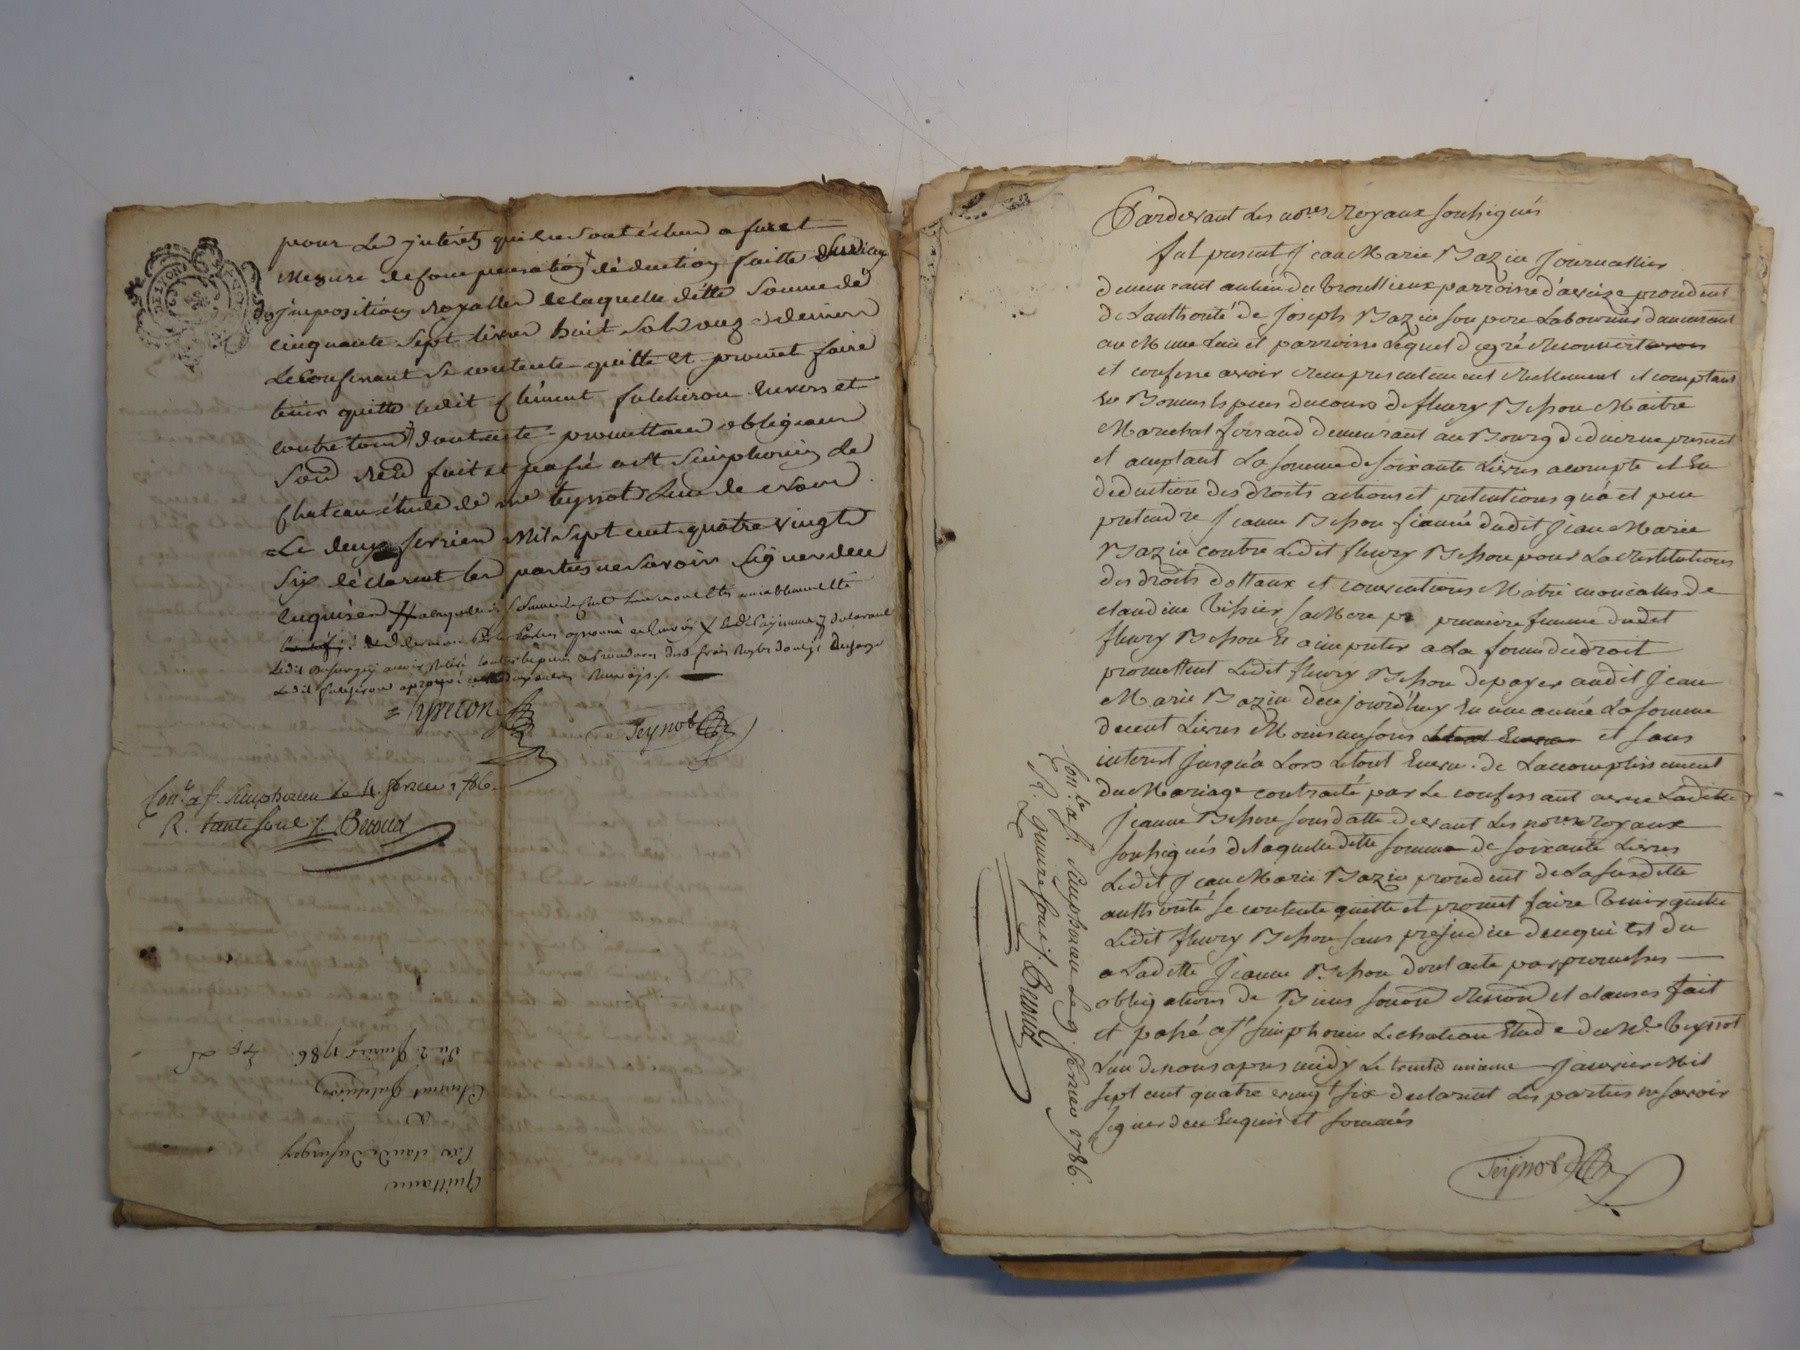 pour les jnterés qui luy sont échus a fur et
mezure de son jmposition déduction faitte
des jmpositions royalles de laquelle ditte somme de
cinquante sept livres huit sols onze deniers
Le Confessant se contente quitte et promet faire
tenir quitte ledit Clément fulchiron envers et
contre tous dont acte promettans obligeans
fait et passé a St Simphorien le
Chateau étude de me teynot L'un de nous
Le deux fevrier Mil sept cent quatre vingt
six déclarent les parties ne savoir signer de ce
enquis et
Teynot
Con.lé a St. Simphorien le 4. fevrier 1786.
R. trente sous Benoud
Quittance
Par claude
a
Clement fulchiron
Du 2. fevrier 1786.
Pardevant Les no.res Royaux soussignés
fut present Jean Marie Bazin Journallier
demeurant au lieu de Brouillieux parroisse d'aveize procedent
de L'authorité de Joseph Bazin son pere Laboureur demeurant
au Même Lieu et parroisse Lequel de gré
et confesse avoir reçu presentement réellement et comptant
en Bonnes especes du cours de fleury Besson Maitre
Marechal ferrand demeurant au Bourg de duerne present
et acceptant La somme de soixante Livres acompte et En
deduction des droits actions et pretentions qu'a et peut
pretendre Jeanne Besson fiancée dudit Jean Marie
Bazin contre Ledit fleury Besson pour La restitution
des droits dottaux et conventions Matrimonialles de
claudine Tissier sa Mere premiere femme dudit
fleury Besson Et a imputer a La forme du droit
promettent Ledit fleury Besson de payer audit Jean
Marie Bazin de ce jourd'huy En une année La somme
de cent Livres Moins un sous et sans
interest Jusqu'a Lors Letout En vu de L'accomplissement
du Mariage contracté par Le confessant avec Laditte
Jeanne Besson sous datte devant Les no.res Royaux
soussignés de laquelle ditte somme de soixante Livres
Ledit Jean Marie Bazin procedent de La susditte
authorité se contente quitte et promet faire Tenir quitte
Ledit fleury Besson sans prejudice de ce qui Est du
a Laditte Jeanne Besson dont acte par promesses
obligations de Biens et clauses fait
et passé a St simphorien Le chateau Etude de Me. Teynot
L'un de nous apres midy Le trente uniéme Janvier Mil
sept cent quatre vingt six declarent Les parties ne savoir
signer de ce Enquis et sommés
Teynot
Con.lé a St. Simphorien Le 9. fevrier 1786.
R. quinze sous Benoud